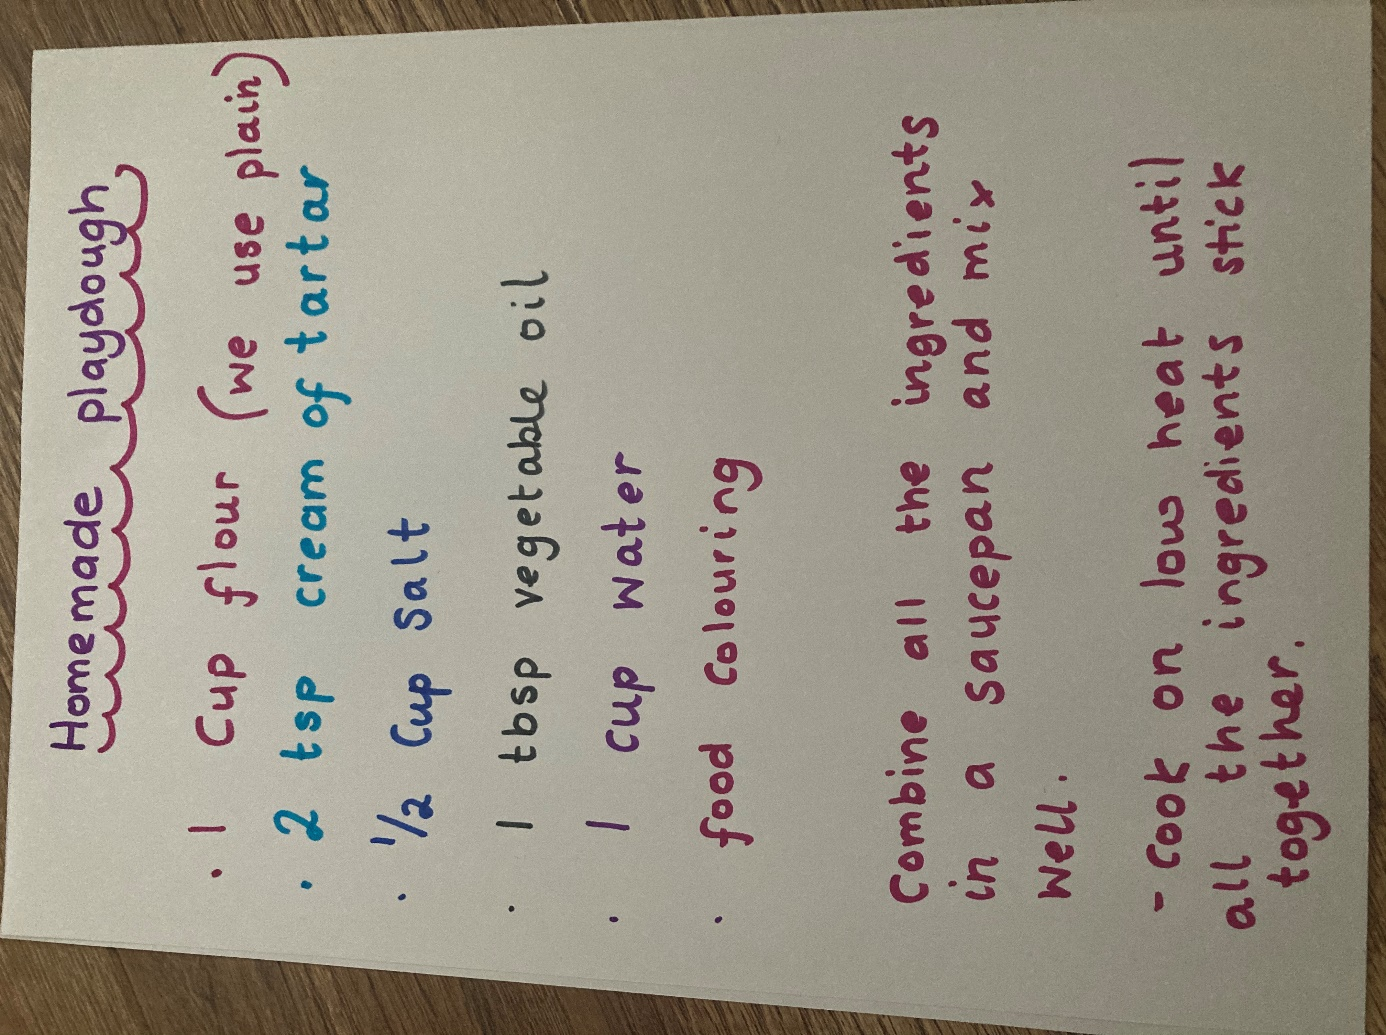 Homemade playdough
· 1 Cup flour (we use plain)
· 2 tsp cream of tartar
· 1/2 Cup Salt
· 1 tbsp vegetable oil
· 1 cup water
· food colouring
Combine all the ingredients
in a saucepan and mix
Well.
- Cook on low heat until
all the ingredients stick
together.